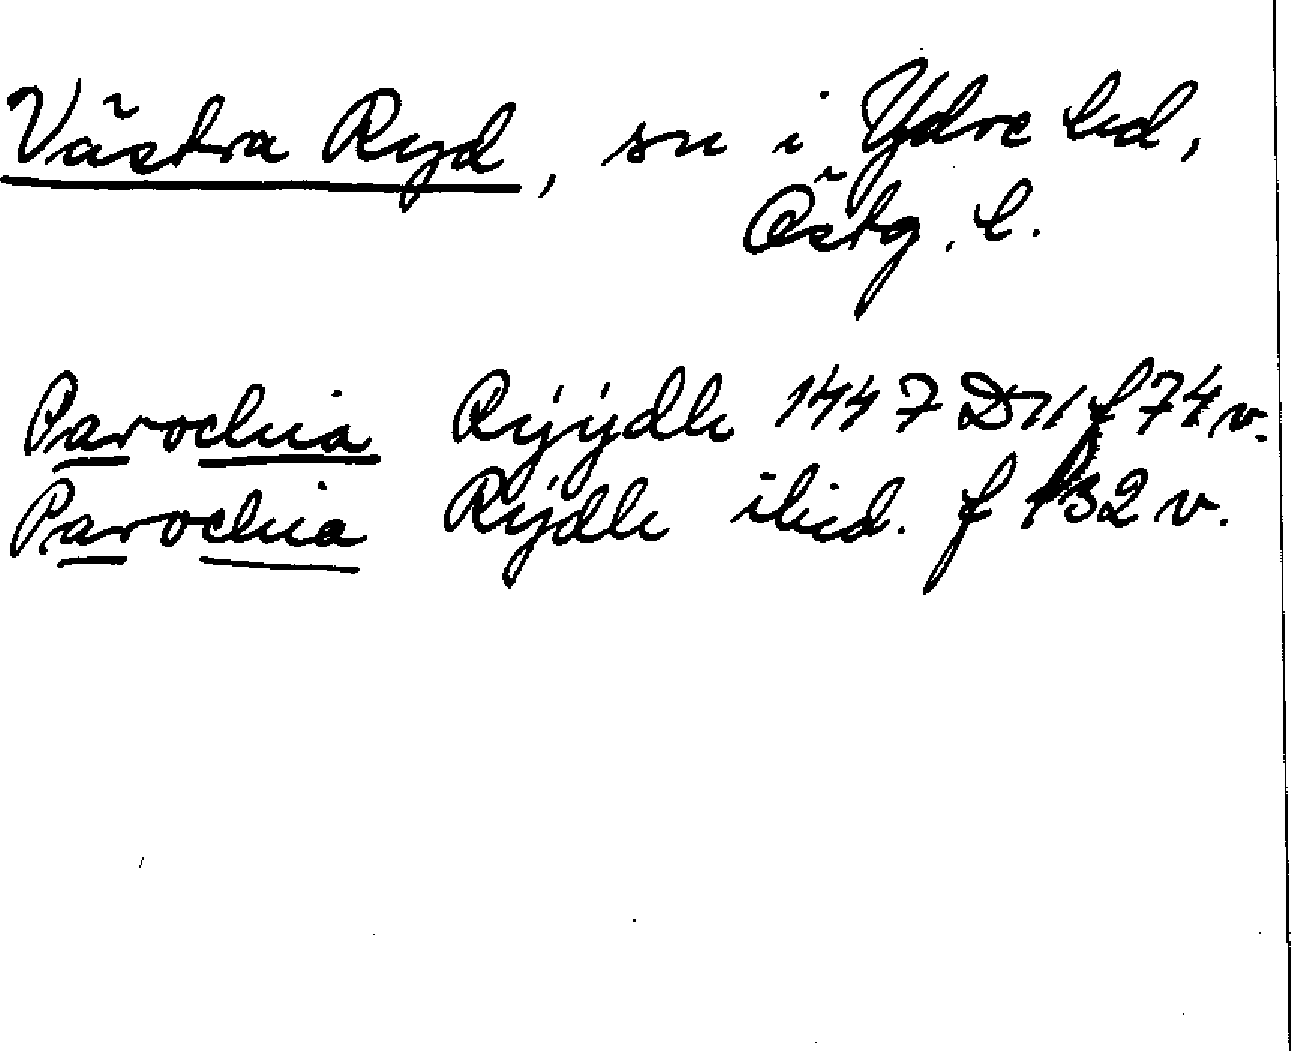 Västra Ryd, sn i Ydre hd,
Östg. l.
Parochia Rÿÿdh 1447 D 11 f 74 v.
Parochia Rÿdh ibid. f 132 v.